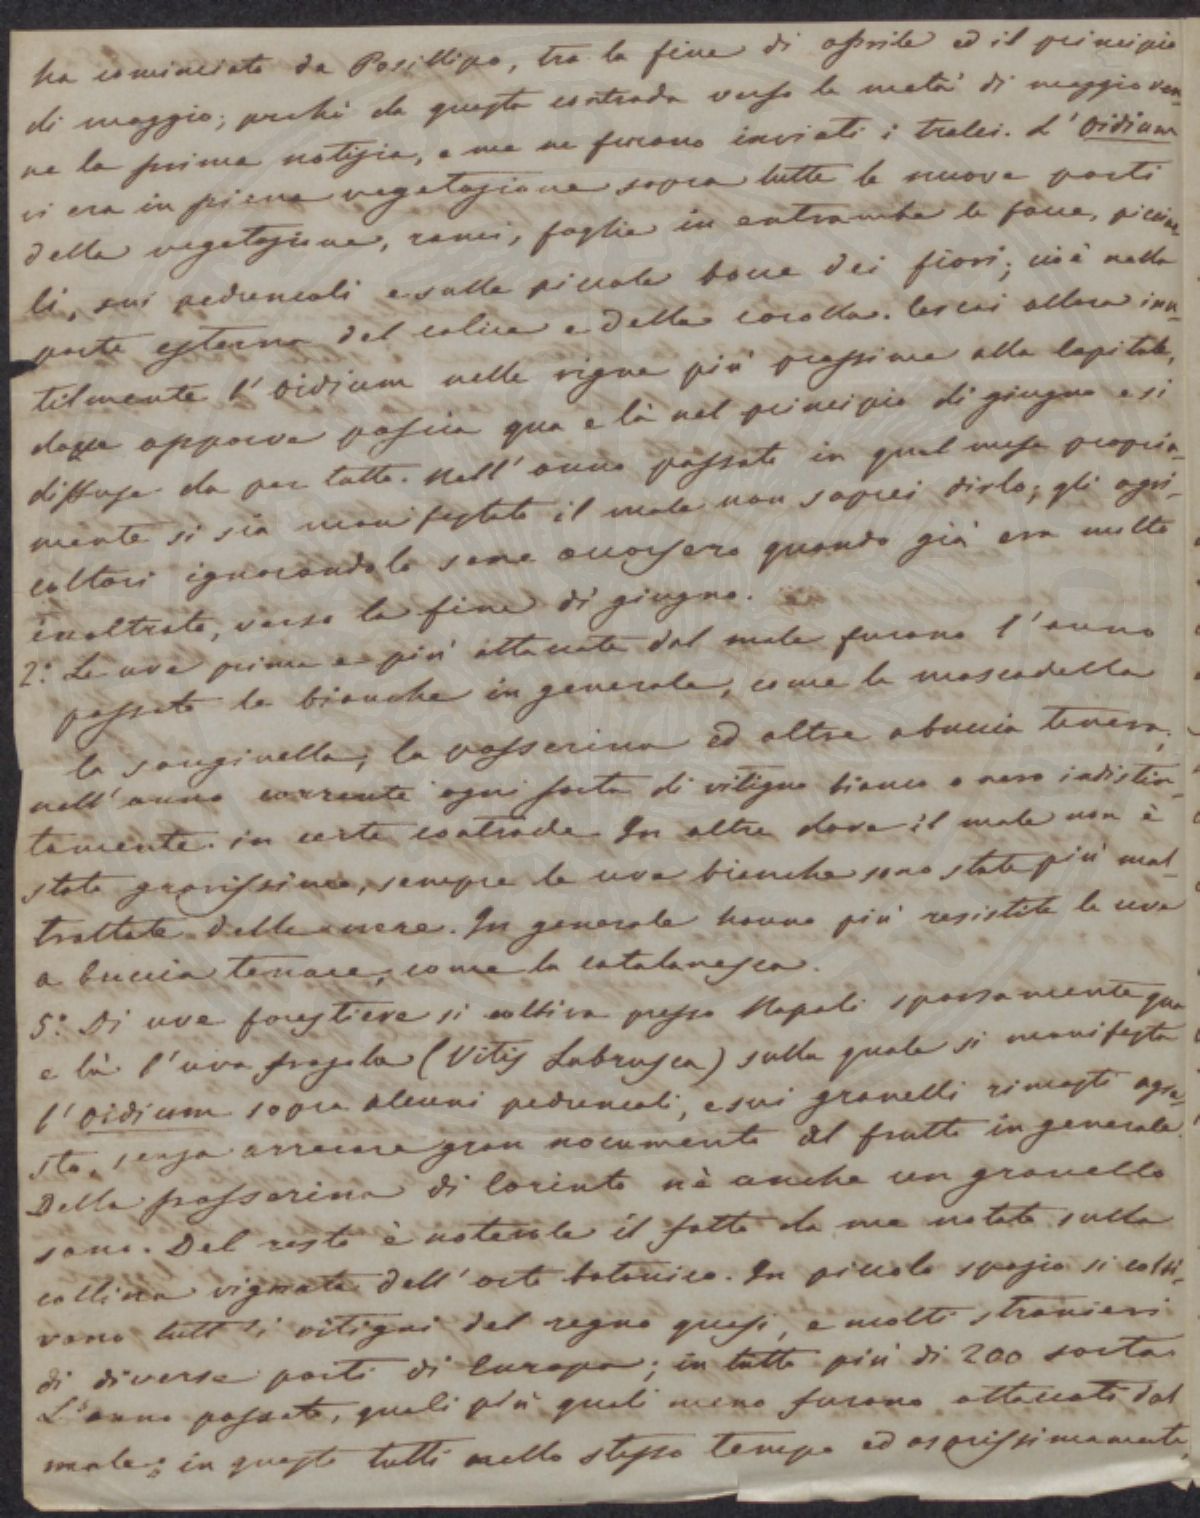 ha cominciato da Posillipo, tra la fine di aprile ed il principio
di maggio; perché da questa contrada verso la metà di maggio ven-
ne la prima notizia, e me ne furono inviati i tralci. L'Oidium
vi era in piena vegetazione sopra tutte le nuove parti
della vegetazione, rami, foglie in entrambe le facce, piccioli,
li, sui peduncoli e sulle piccole bocce dei fiori; cioè nella
parte esterna del calice e della corolla. Cercai allora inu-
tilmente l'Oidium nelle vigne più prossime alla Capitale,
dove apparve poscia qua e là nel principio di giugno e si
diffuse da per tutto. Nell'anno passato in qual mese propria-
mente si sia manifestato il male non saprei dirlo; gli agri-
coltori ignorandolo sene accorsero quando già era molto
inoltrato, verso la fine di giugno.
2.° Le uve prime e più attaccate dal male furono l'anno
passato le bianche in generale, come la moscadella
la sanginella, la passerina ed altre a buccia tenera,
nell'anno corrente ogni sorta di vitigno bianco o nero indistin-
tamente in certe contrade. In altre dove il male non è
stato gravissimo, sempre le uve bianche sono state più mal-
trattate delle nere. In generale hanno più resistito le uve
a buccia tenace, come la catalanesca.
5.° Di uve forestiere si coltiva presso Napoli sparsamente qua
e là l'uva fragola (Vitis Labrusca) sulla quale si manifesta
l'Oidium sopra alcuni peduncoli, e sui granelli rimasti agre-
sto, senza arrecare gran nocumento al frutto in generale.
Della passerina di Corinto nè anche un granello
sano. Del resto è notevole il fatto da me notato sulla
collina vignata dell'orto botanico. In piccolo spazio si colti-
vano tutt'i vitigni del regno quasi, e molti stranieri
di diverse parti di Europa; in tutto più di 200 sorta.
L'anno passato, quali più quali meno furono attaccati dal
male; in questo tutti nello stesso tempo ed asprissimamente